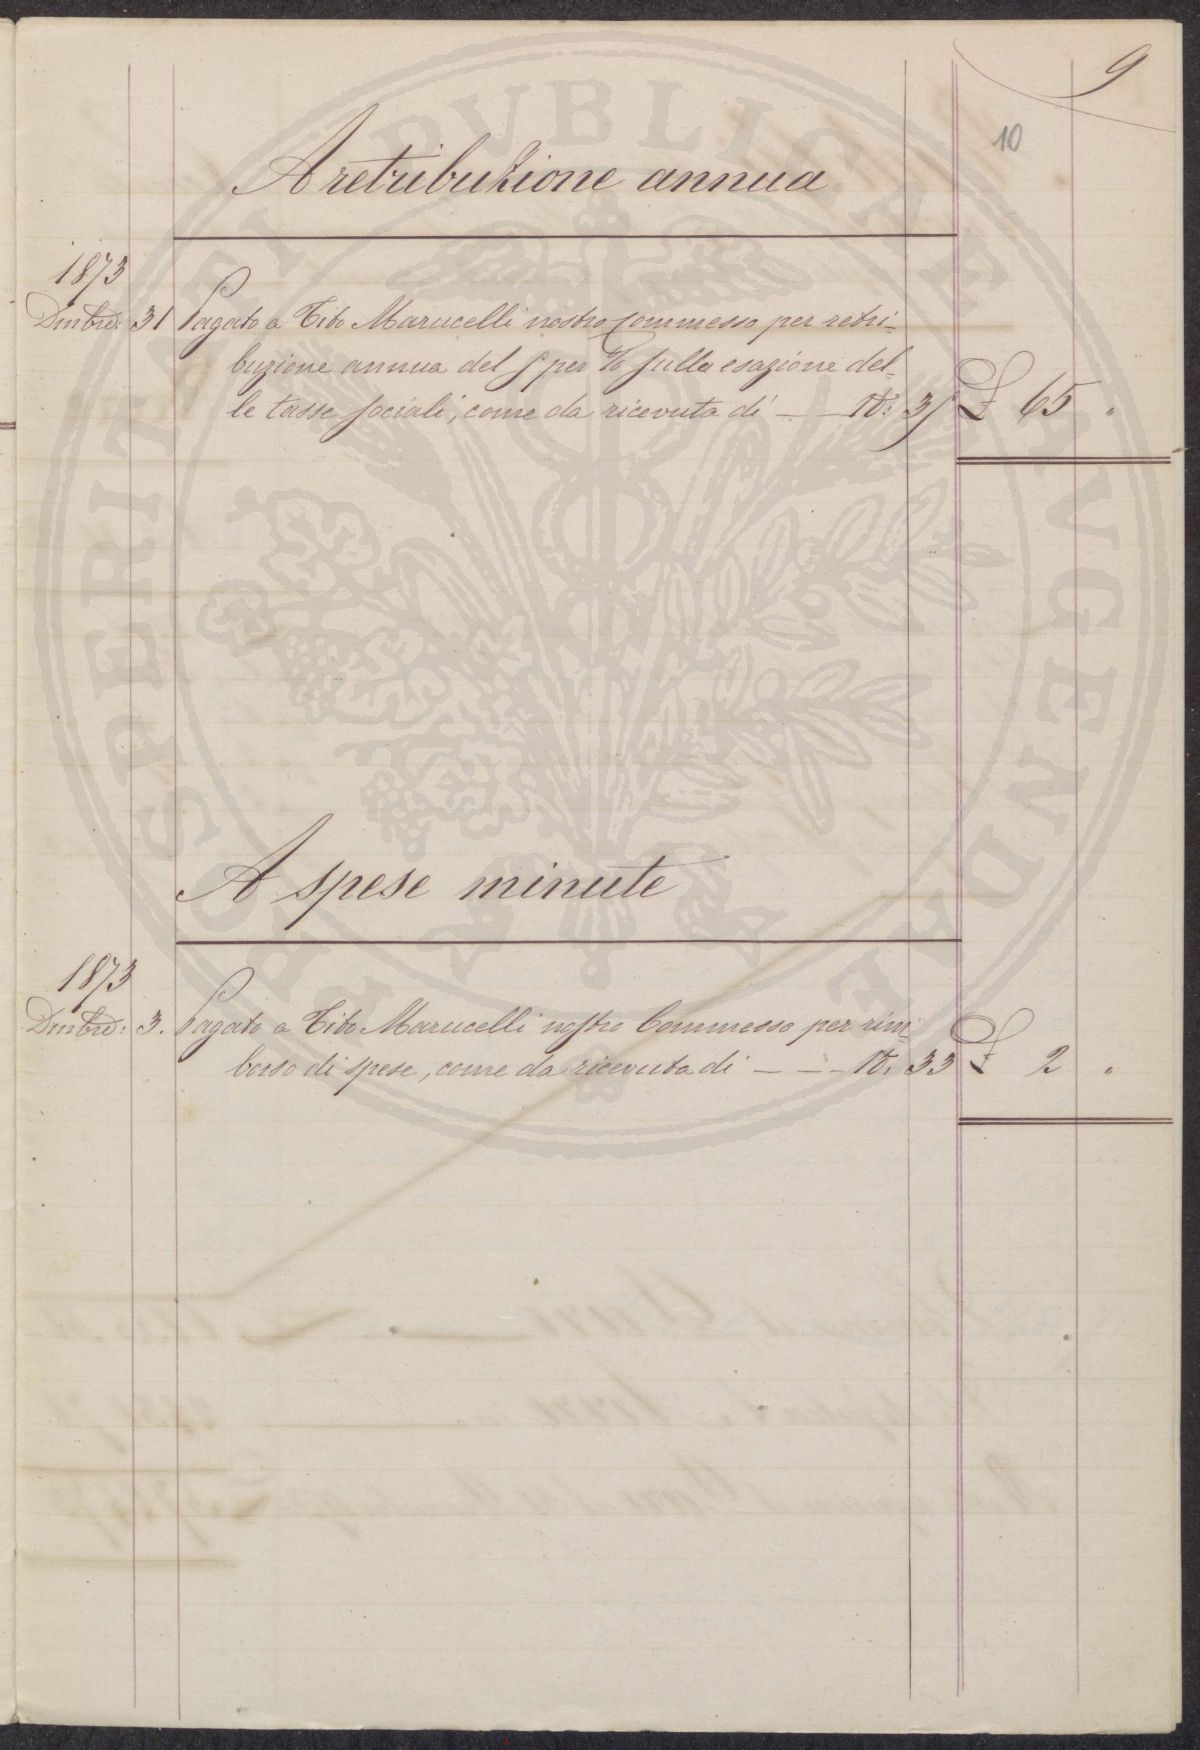 9
10
A retribuzione annua
1873
Dmbre: 31 Pagato a Tito Marucelli nostro Commesso per retri-
buzione annua del 5 per % sulla esazione del-
le tasse sociali, come da ricevuta di — — No: 35 £ 65 "
A spese minute
1873
Dmbre: 3. Pagato a Tito Marucelli nostro Commesso per rim-
borso di spese, come da ricevuta di — — — No. 33 £ 2 "
PROSPERITATI PUBLICAE AUGENDAE